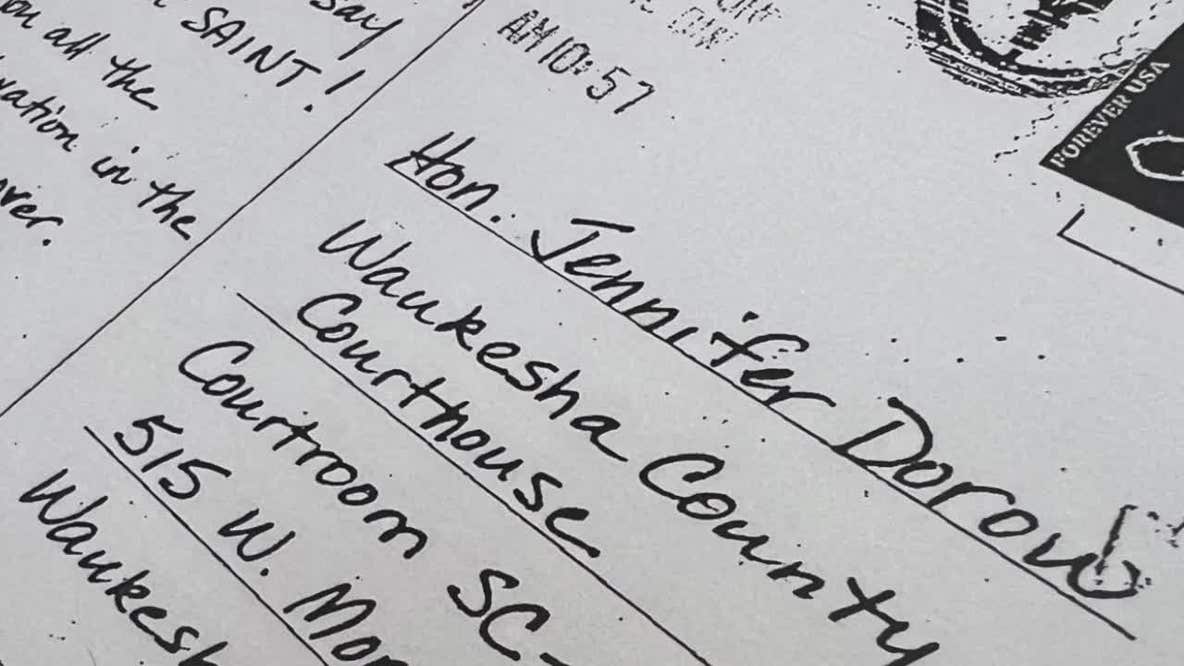 say
SAINT!
on all the
vation in the
ver.
AM 10:57
FOREVER USA
Hon. Jennifer Dorow
Waukesha County
Courthouse
Courtroom SC-
515 W. Mor
Waukesh